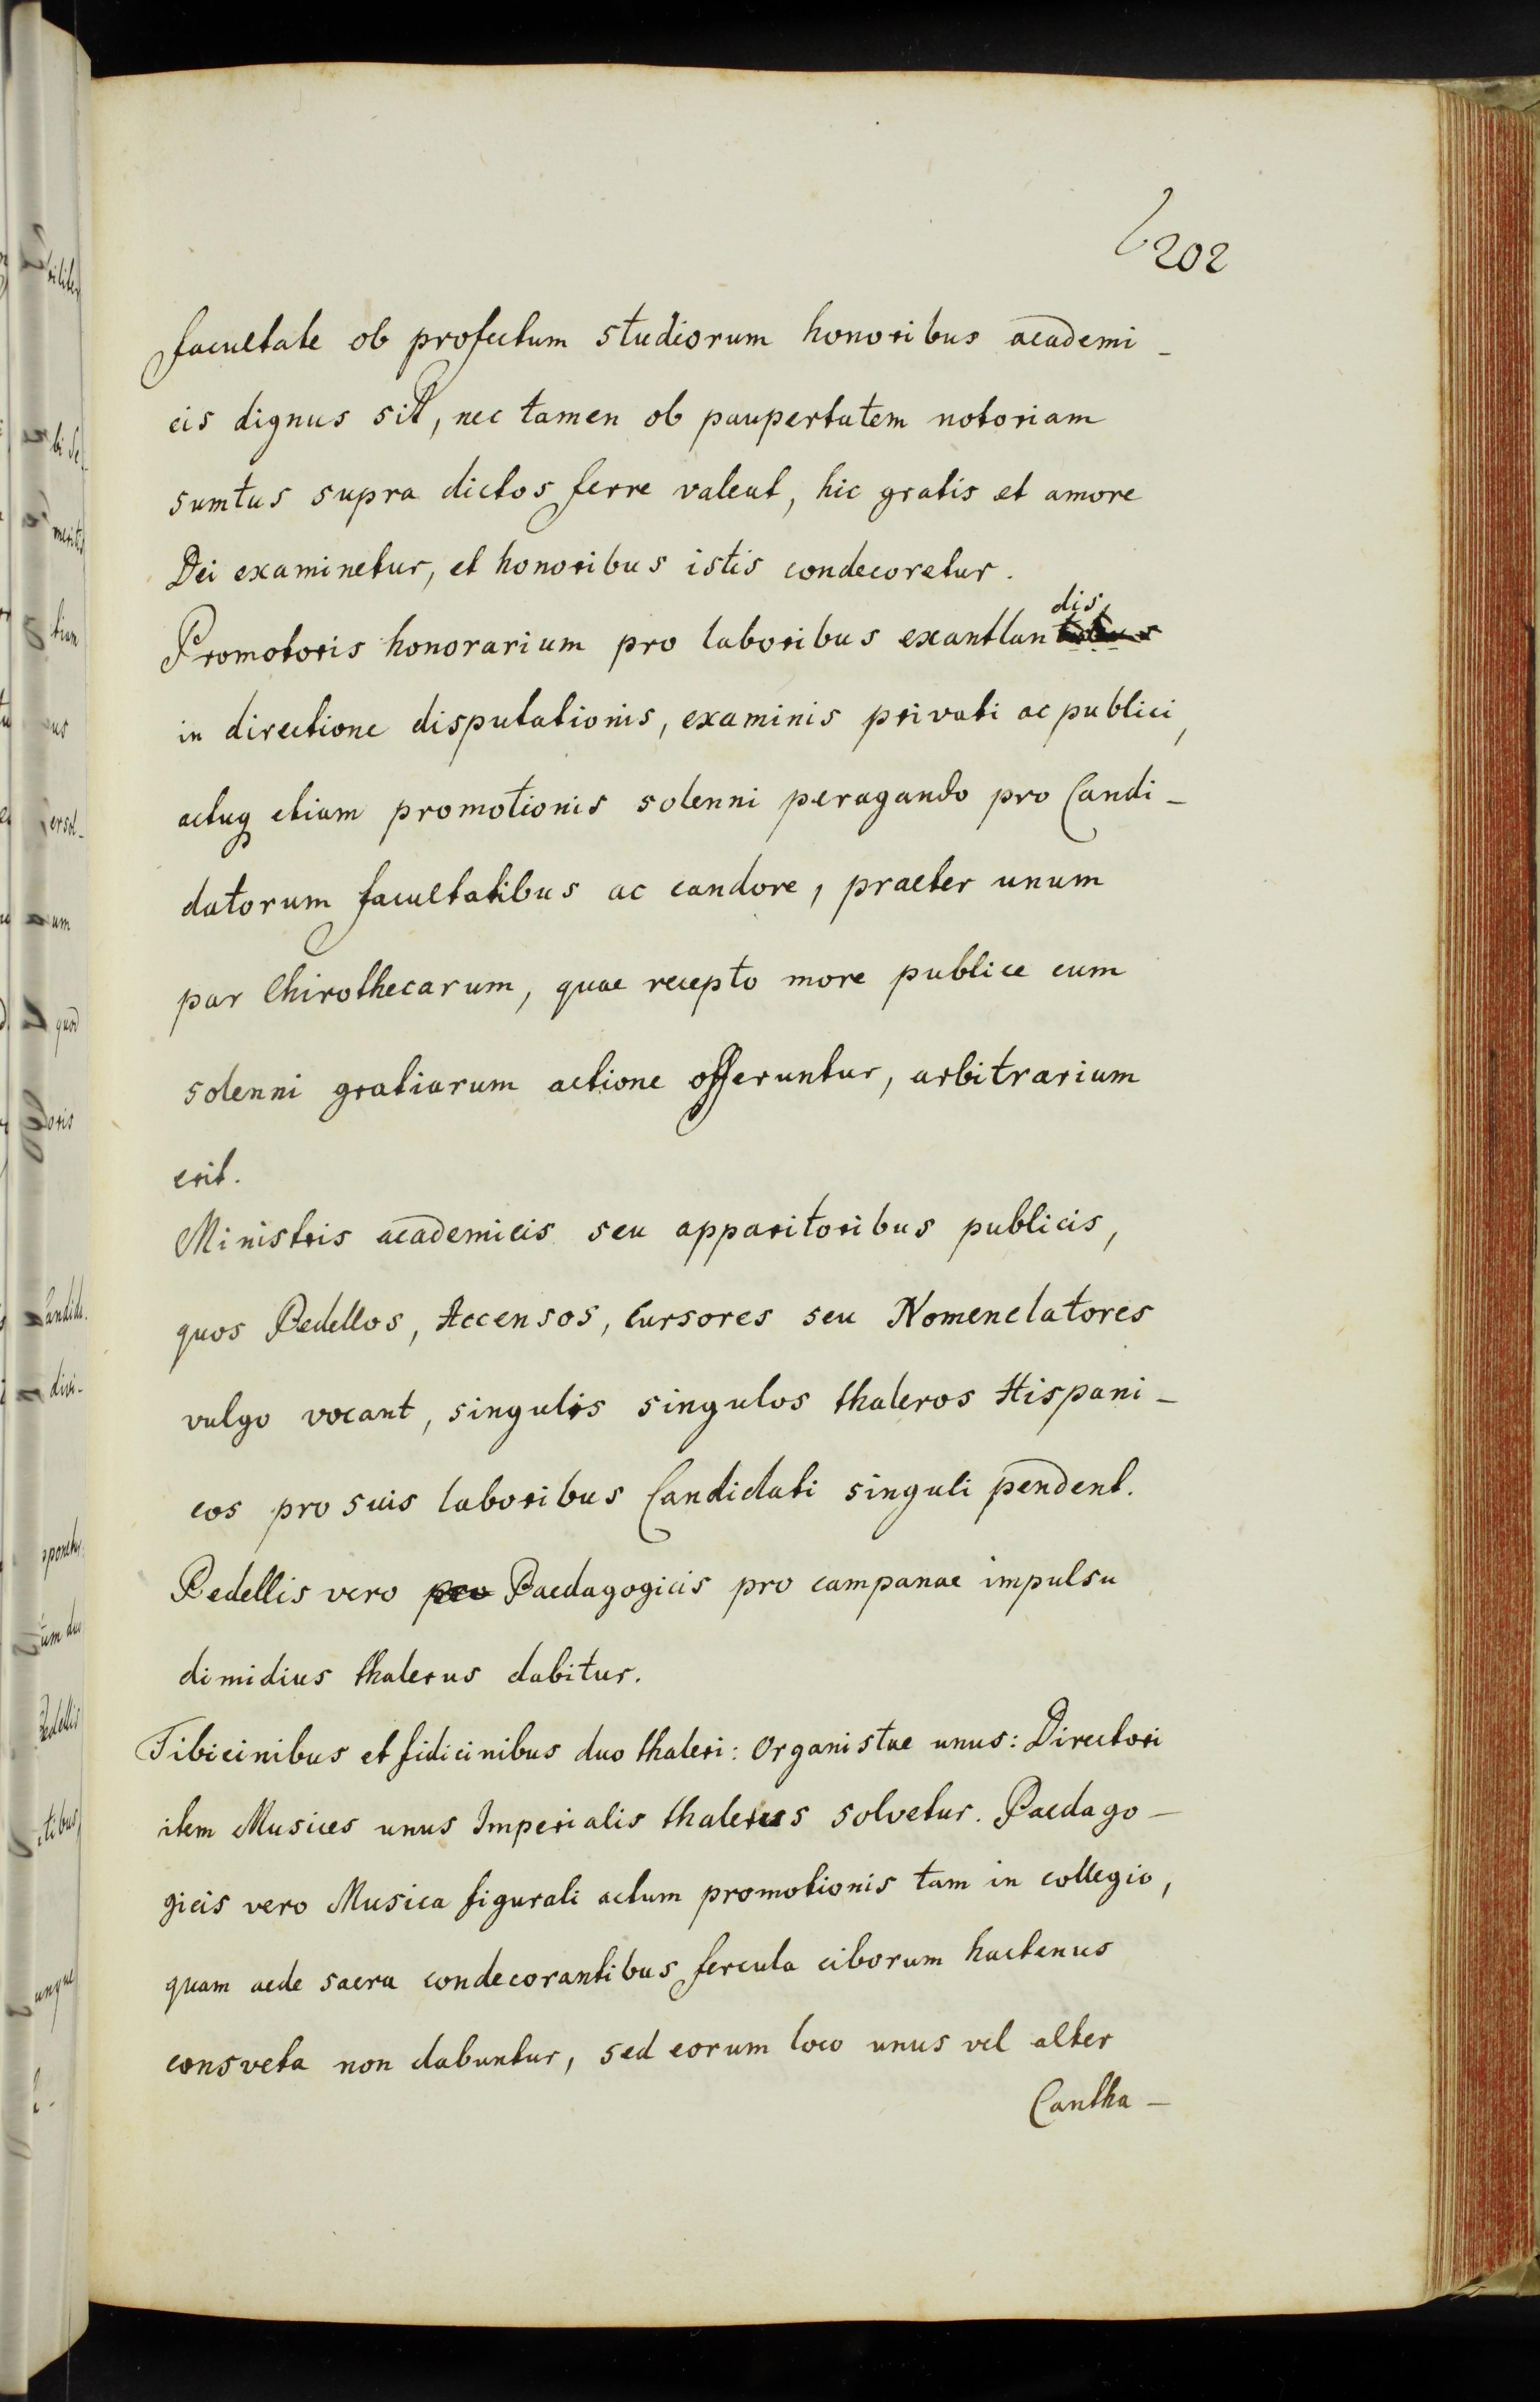 202
facultate ob profectum studiorum honoribus academi-
cis dignus sit, nec tamen ob paupertatem notoriam
sumtus supra dictos ferre valeat, hic gratis et amore
Dei examinetur, et honoribus istis condecoretur.
Promotoris honorarium pro laboribus exantlandis
in directione disputationis, examinis privati ac publici,
actuq etiam promotionis solenni peragando pro Candi-
datorum facultatibus ac candore, praeter unum
par Chirothecarum, quae recepto more publice cum
solenni gratiarum actione offeruntur, arbitrarium
erit.
Ministris academicis seu apparitoribus publicis,
quos Pedellos, Accensos, Cursores seu Nomenclatores
vulgo vocant, singulis singulos thaleros Hispani-
cos pro suis laboribus Candidati singuli pendent.
Pedellis vero pro Paedagogicis pro campanae impulsu
dimidius thalerus dabitur.
Tibicinibus et fidicinibus duo thaleri: Organistae unus: Directori
item Musices unus Imperialis thalerus solvetur. Paedago-
gicis vero Musica figurali actum promotionis tam in collegio,
quam aede sacra condecorantibus fercula ciborum hactenus
consveta non dabuntur, sed eorum loco unus vel alter
Cantha-